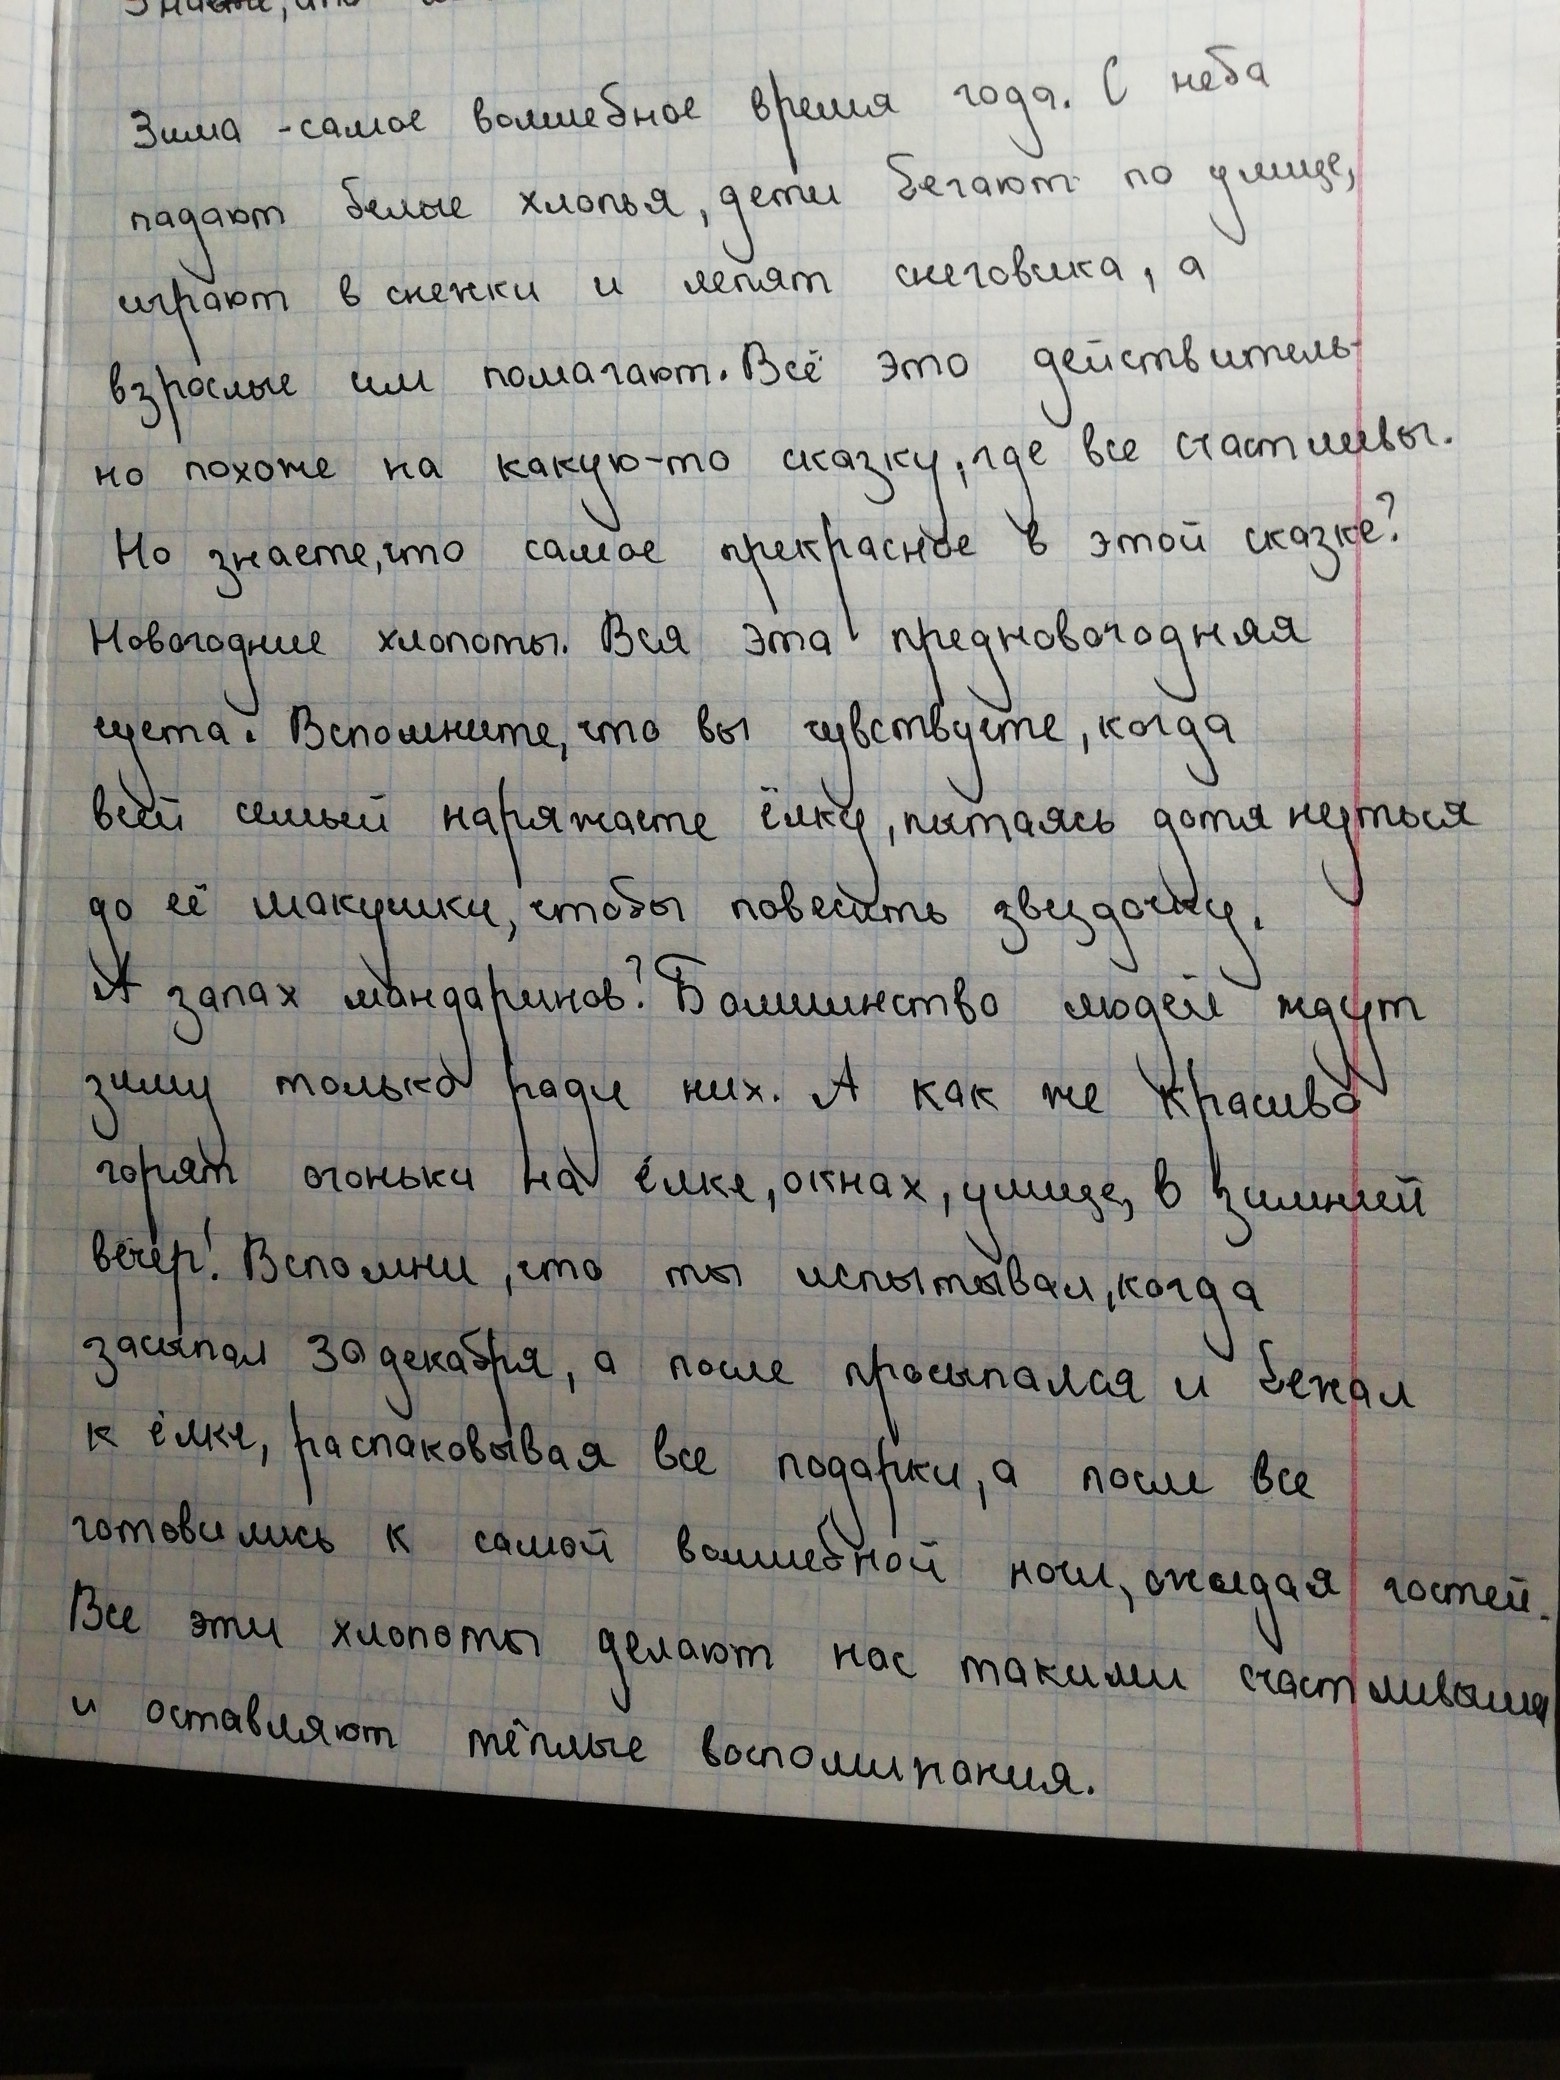 Знаете, что
Зима - самое волшебное время года. С неба
падают белые хлопья, дети бегают по улице,
играют в снежки и лепят снеговика, а
взрослые им помагают. Всё это действитель-
но похоже на какую-то сказку, где все счастливы.
Но знаете, что самое прекрасное в этой сказке?
Новогодние хлопоты. Вся эта предновогодняя
суета. Вспомните, что вы чувствуете, когда
всей семьей наряжаете ёлку, пытаясь дотянуться
до её макушки, чтобы повесить звездочку.
А запах мандаринов? Большинство людей ждут
зиму только ради них. А как же красиво
горят огоньки на ёлке, окнах, улице, в зимний
вечер! Вспомни, что ты испытывал, когда
засыпал 30 декабря, а после просыпался и бежал
к ёлке, распаковывая все подарки, а после все
готовились к самой волшебной ночи, ожидая гостей.
Все эти хлопоты делают нас такими счастливыми
и оставляют тёплые воспоминания.